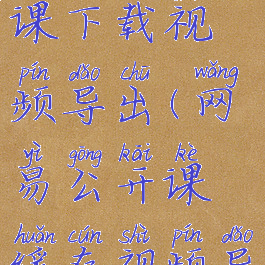 课下载视
pín dǎo chū wǎng
频导出(网
yì gōng kāi kè
易公开课
huǎn cún shì pín dǎo
缓存视频导